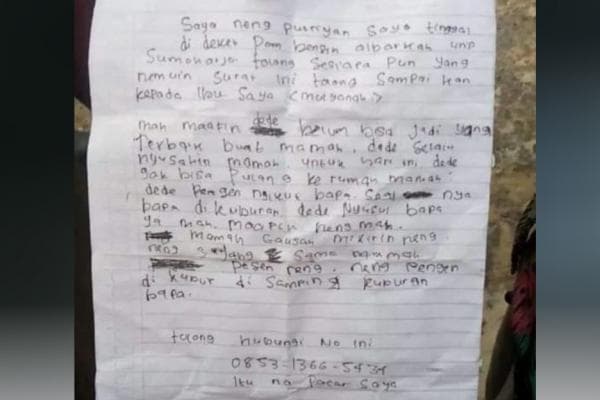 Saya neng putriyan saya tinggal
di deket Pom bensin albarkah unp
Sumoharjo tolong Sesiapa Pun yang
nemuin Surat ini tolong Sampai kan
kepada Ibu Saya (muryanah)
mah maafin dede belum bisa jadi yang
terbaik buat mamah. dede selalu
nyusahin mamah untuk hari ini dede
gak bisa pulang ke rumah mamah
dede pengen ngikut bapa. nya
bapa di kuburan dede Nyusul bapa
ya mah. maapin neng mah.
mamah Gausah mikirin neng
neng sama mamah
pesen neng. neng pengen
di kubur di samping kuburan
bapa.
tolong hubungi No ini
0853-1366-5434
Itu na Pacar Saya